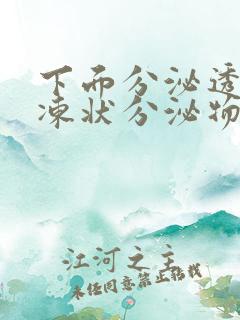 下面分泌透
冻状分泌物
江河之主
未经同意禁止转载